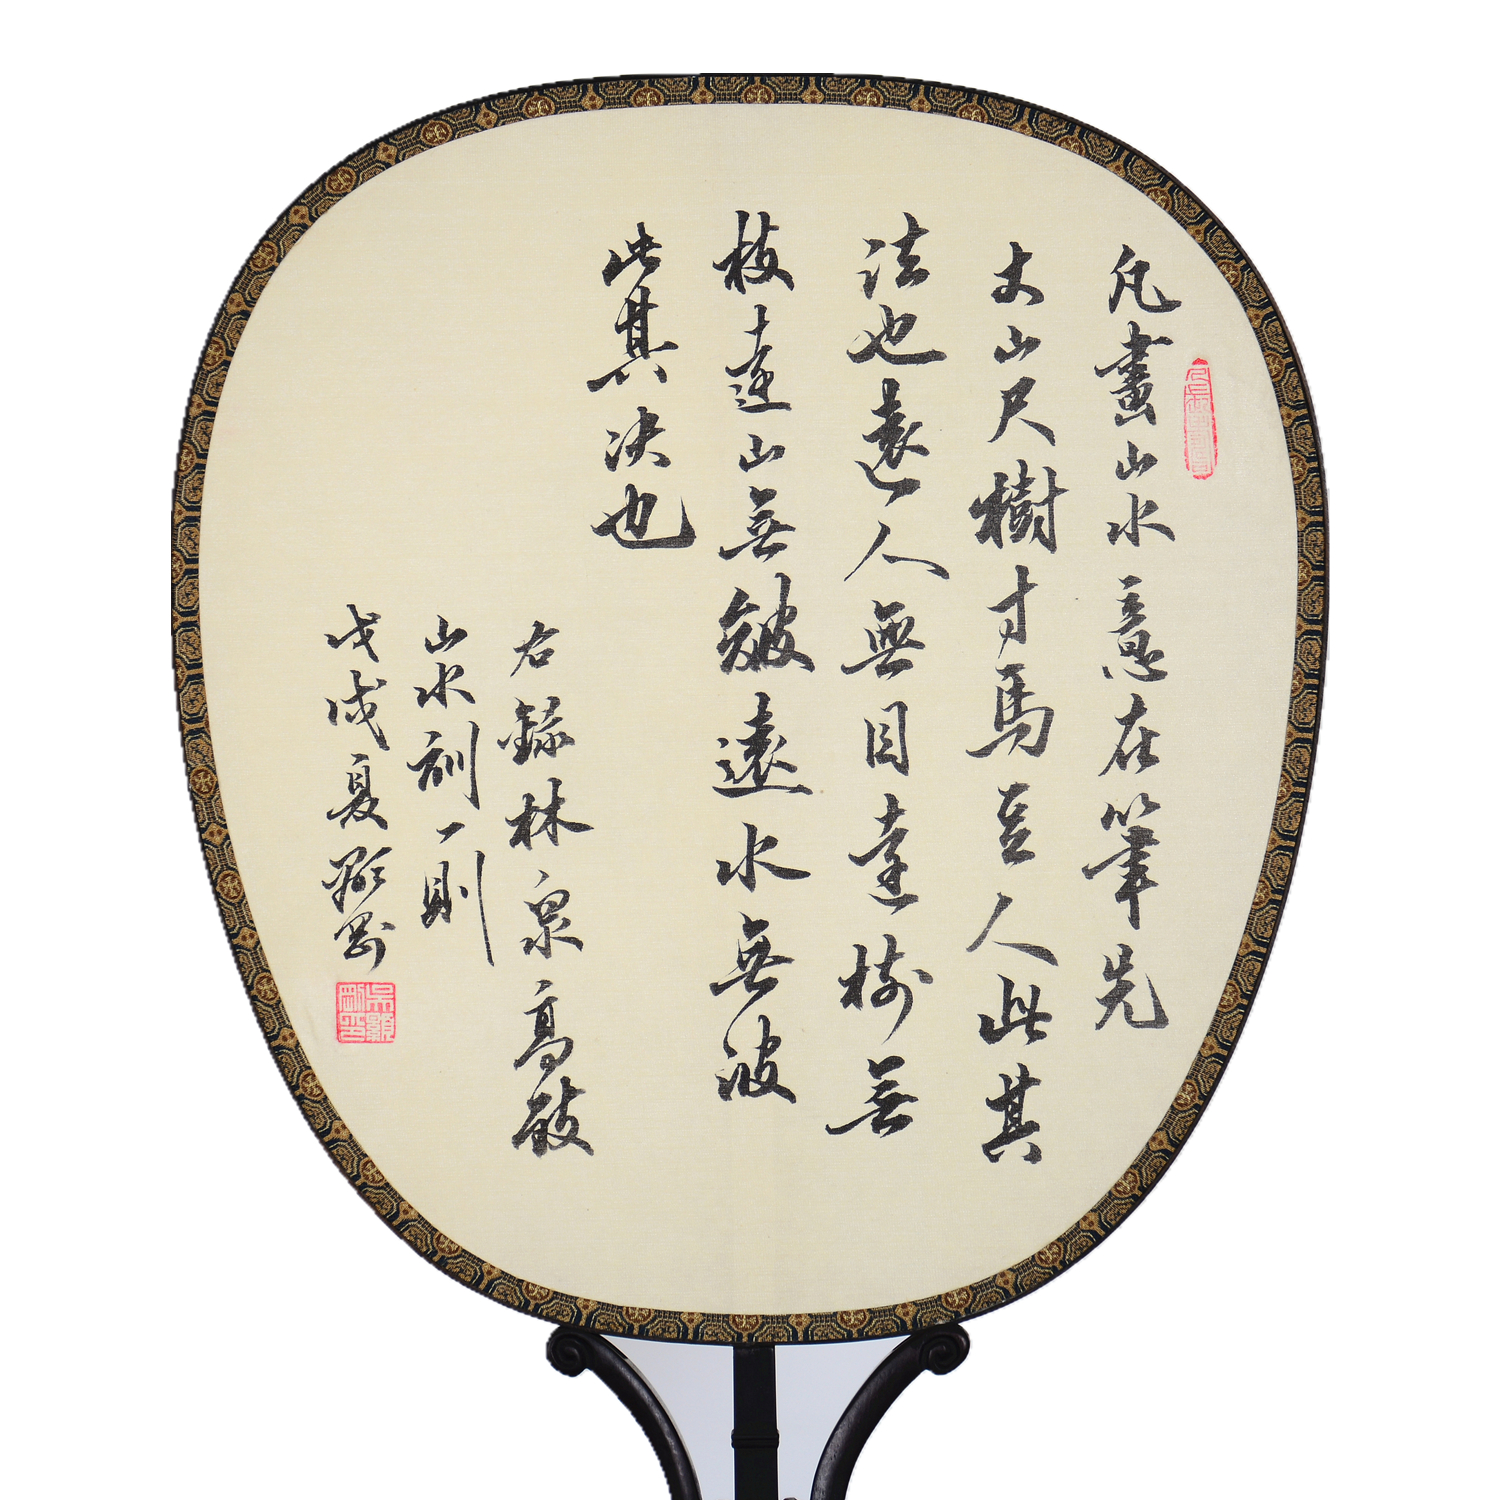 凡畫山水意在筆先
丈山尺樹寸馬豆人此其
法也遠人無目遠樹無
枝遠山無皴遠水無波
此其决也
右錄林泉高致
山水訓一則
戊戌夏顥剛
吳顥剛印